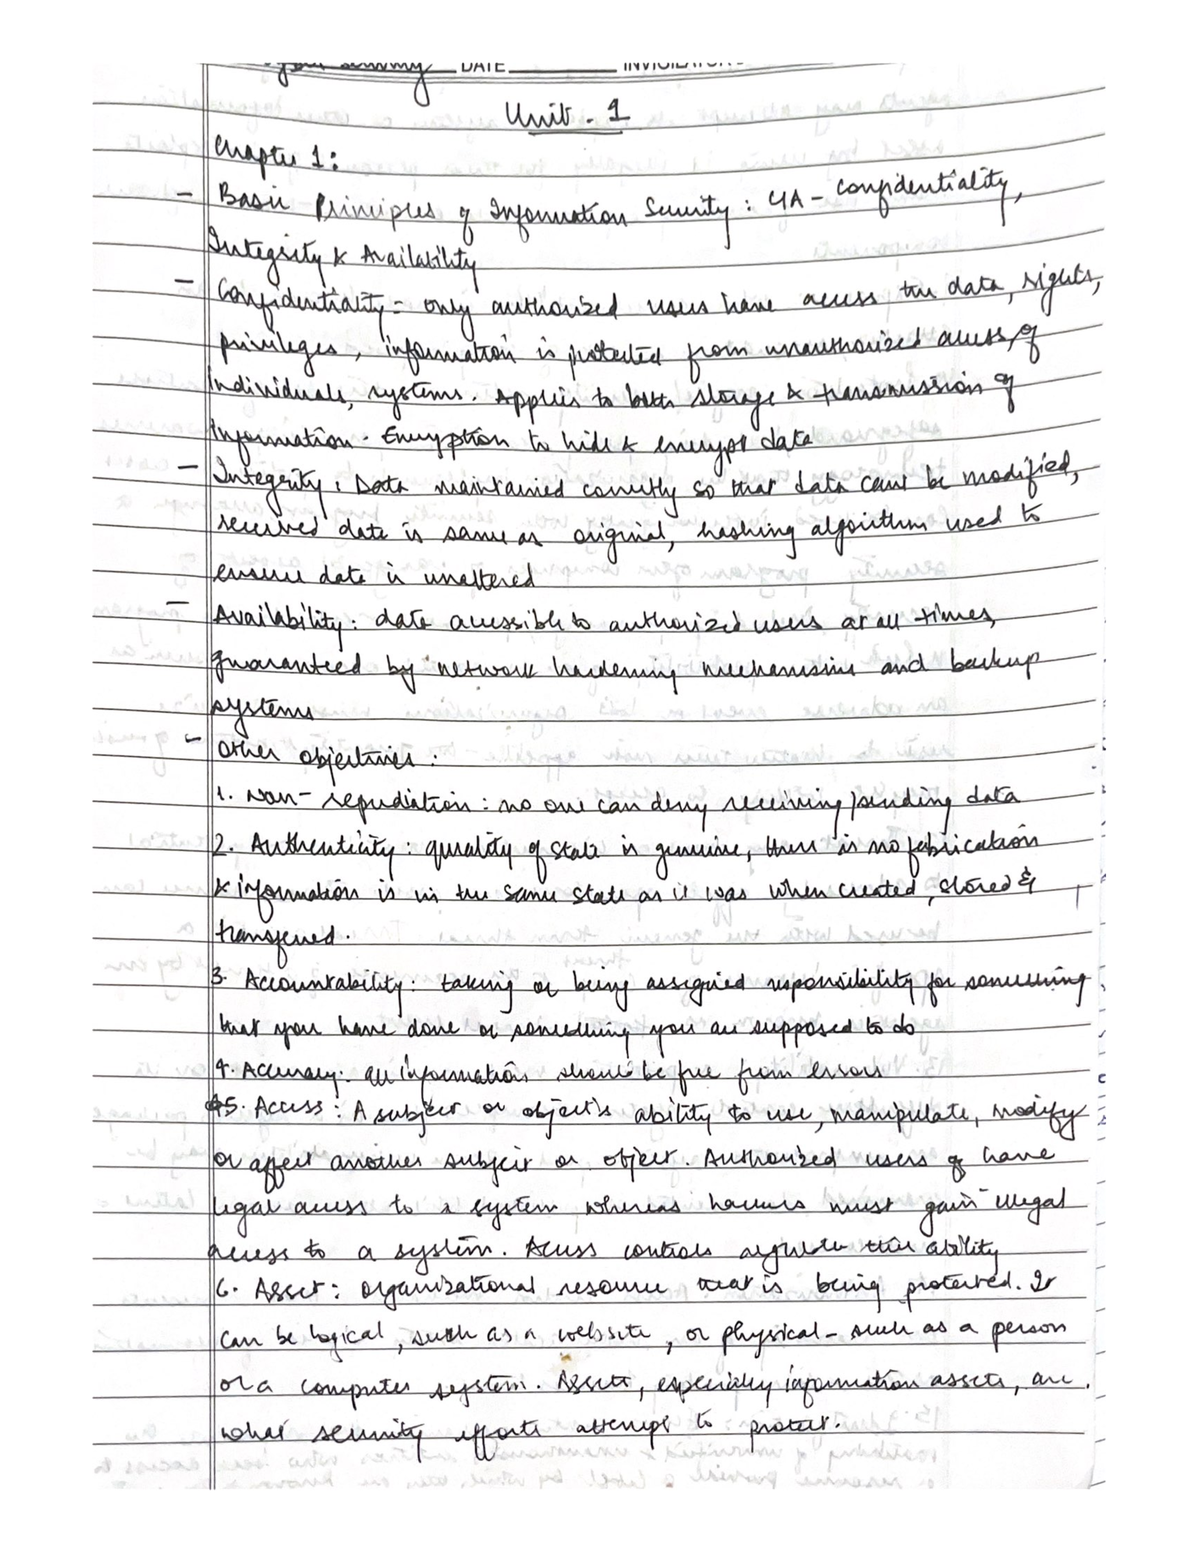 DATE
Unit - 1
Chapter 1:
- Basic Principles of Information Security : CIA - Confidentiality,
Integrity & Availability
- Confidentiality = only authorized users have access the data, rights,
privileges, information is protected from unauthorized access of
individuals, systems. Applies to both storage & transmission of
information. Encryption to hide & encrypt data
- Integrity: Data maintained correctly so that data cant be modified,
received data is same as original, hashing algorithm used to
ensure data is unaltered
- Availability: data accessible to authorized users at all times,
guaranteed by network hardening mechanisms and backup
systems
- Other objectives:
1. Non-repudiation: no one can deny receiving/sending data
2. Authenticity: quality of state is genuine, there is no fabrication
& information is in the same state as it was when created, stored &
transferred.
3. Accountability: taking or being assigned responsibility for something
that you have done or something you are supposed to do
4. Accuracy: all information should be free from errors
5. Access: A subject or object's ability to use, manipulate, modify
or affect another subject or object. Authorized users have
legal access to a system whereas hackers must gain illegal
access to a system. Access controls regulate this ability
6. Asset: organizational resource that is being protected. It
can be logical, such as a website, or physical - such as a person
or a computer system. Assets, especially information assets, are
what security efforts attempt to protect.